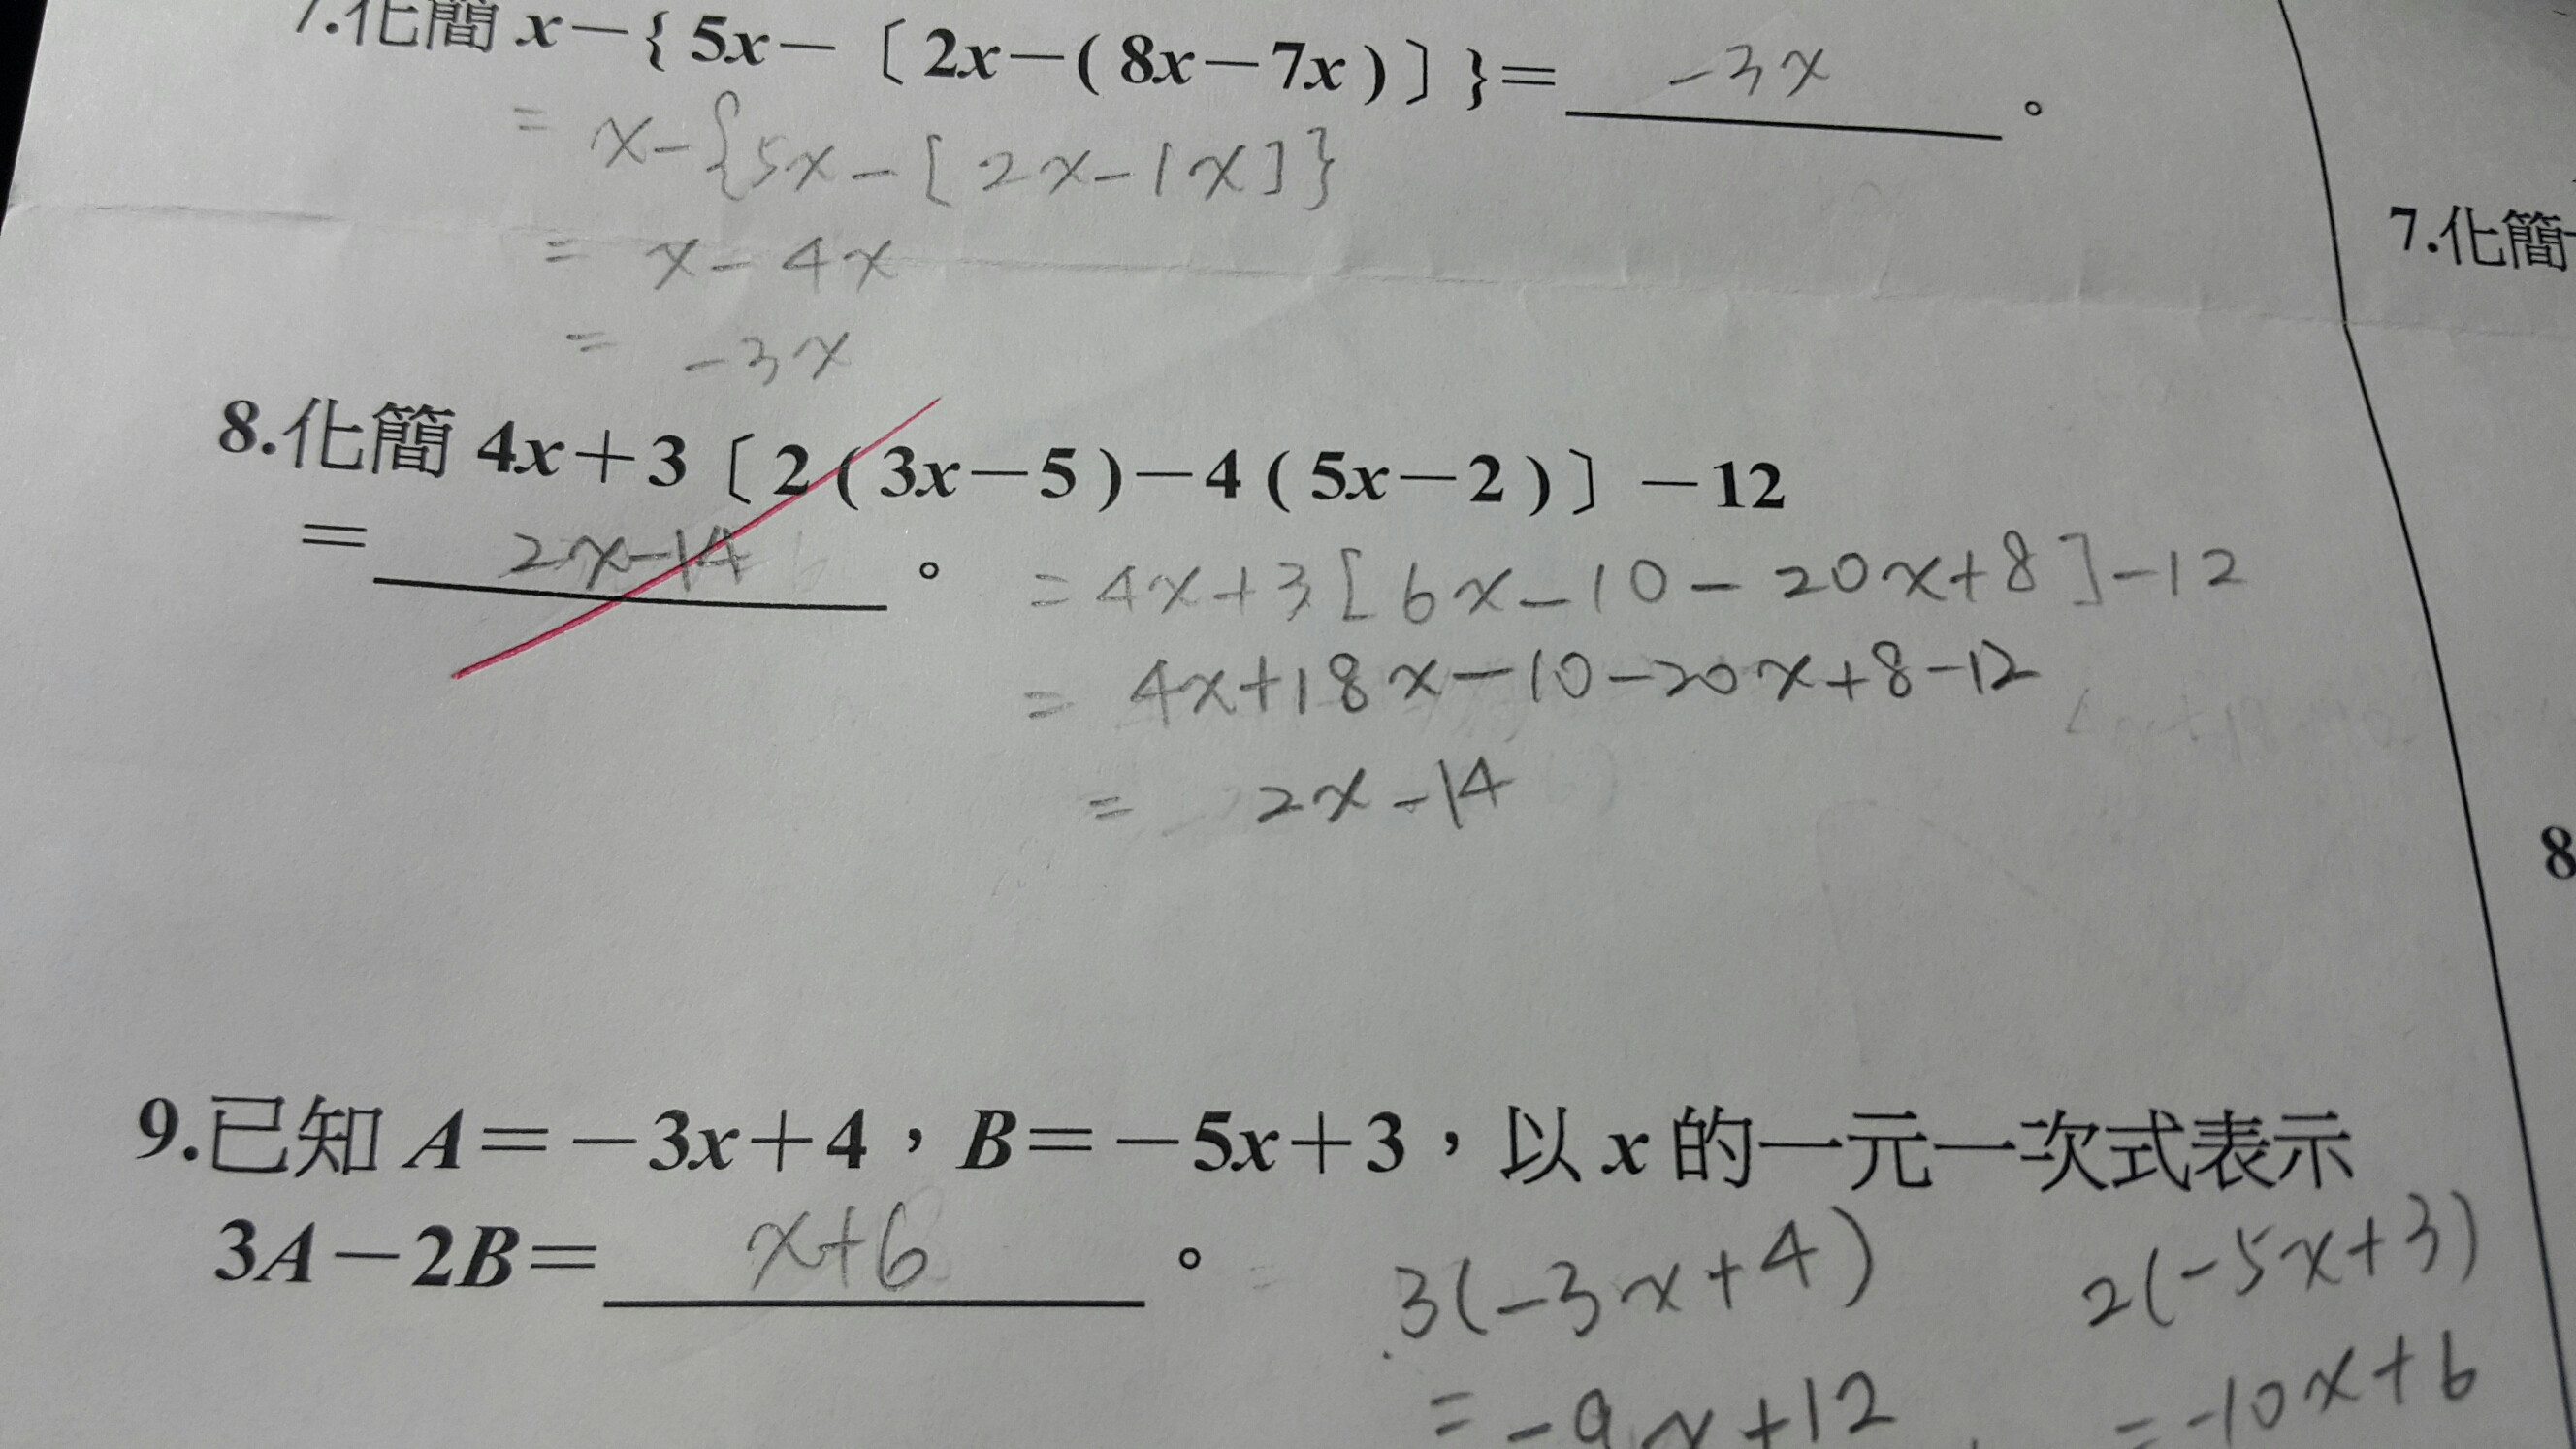 7.化簡 x－{ 5x－〔 2x－( 8x－7x ) 〕}＝ -3x 。
= x-{5x-[2x-1x]}
= x-4x
= -3x
8.化簡 4x＋3〔 2 ( 3x－5 )－4 ( 5x－2 ) 〕－12
＝ 2x-14 。
=4x+3[6x-10-20x+8]-12
= 4x+18x-10-20x+8-12
= 2x-14
9.已知 A＝－3x＋4，B＝－5x＋3，以 x 的一元一次式表示
3A－2B＝ x+6 。
3(-3x+4)
= -9x+12
2(-5x+3)
= -10x+6
7.化簡
8